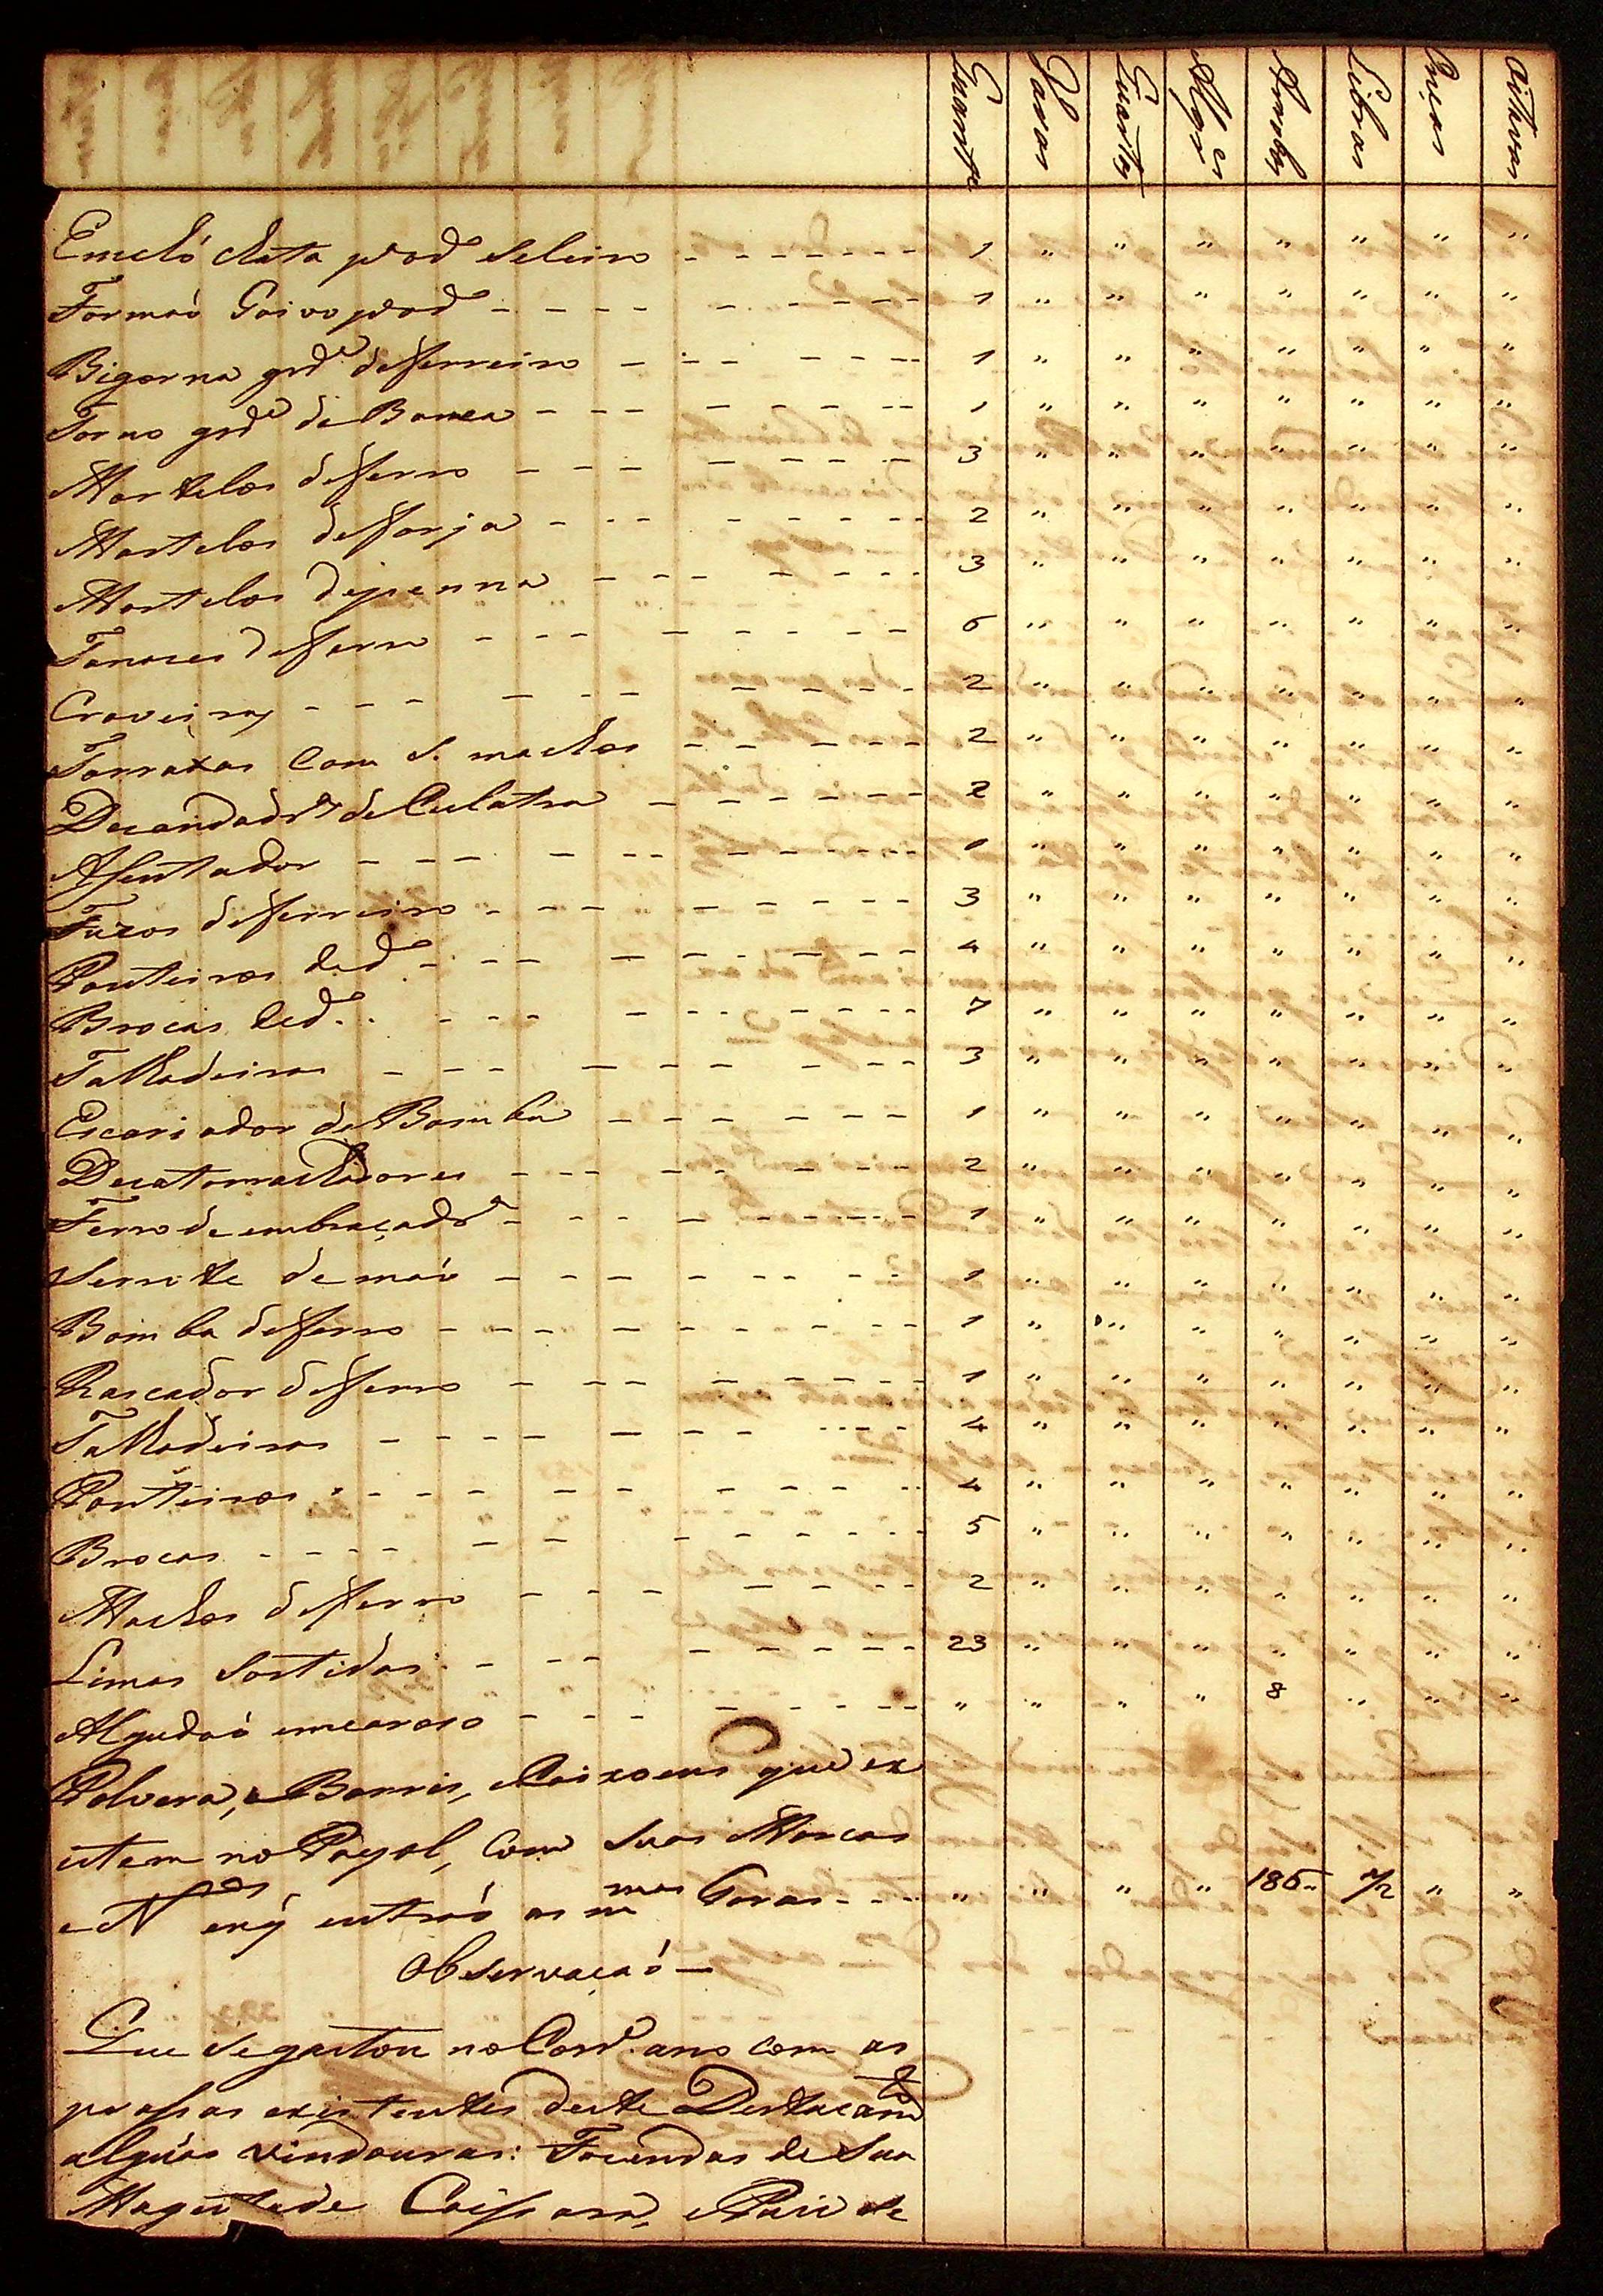 Quantid.e Varas Quartas Alqr.es Arrobas Libras Onças Oitavas
Emchó chata p.a o d.o Seleiro - - - - - - - 1 " " " " " " "
Formaó Goivo p.a o d.o - - - - - - - - 1 " " " " " " "
Bigorna grd.e de ferreiro - - - - - - - 1 " " " " " " "
Torno grd.e de Banca - - - - - - - - 1 " " " " " " "
Martelos de ferro - - - - - - - - 3 " " " " " " "
Martelos de forja - - - - - - - - 2 " " " " " " "
Martelos de penna - - - - - - - - 3 " " " " " " "
Tanazes de ferro - - - - - - - - 6 " " " " " " "
Craveiras - - - - - - - - - 2 " " " " " " "
Tarraxas Com S. machos - - - - - - 2 " " " " " " "
de Culatra - - - - - - 2 " " " " " " "
Asentador - - - - - - - - - 1 " " " " " " "
Fuzos de ferreiro - - - - - - - - 3 " " " " " " "
Ponteiros de d.o - - - - - - - - 4 " " " " " " "
Brocas de d.o - - - - - - - - 7 " " " " " " "
Talhadeiras - - - - - - - - - 3 " " " " " " "
Escariador de Bomba - - - - - - - 1 " " " " " " "
Desatarrachadores - - - - - - - - 2 " " " " " " "
Ferro de embraçad.r - - - - - - - - 1 " " " " " " "
Serrote de maó - - - - - - - - 1 " " " " " " "
Bomba de ferro - - - - - - - - 1 " " " " " " "
Rascador de ferro - - - - - - - - 1 " " " " " " "
Talhadeiras - - - - - - - - - 4 " " " " " " "
Ponteiros - - - - - - - - - 4 " " " " " " "
Brocas - - - - - - - - - 5 " " " " " " "
Machos de ferro - - - - - - - 2 " " " " " " "
Limas Sortidas - - - - - - - - 23 " " " " " " "
Algudaó emcaroso - - - - - - - - " " " " 8 " " "
Polvora, e Barris, e Caixoens que ex
istem no Payol, Com Suas Marcas
e N.os en q entraó as m.mas Taras - - - " " " " 186 " 1/2 " "
Observaçaó -
Que se gastou no Corr.e ano com as
prassas existentes deste Destacam.to
alguás vindouras: Fazendas de Sua
Magestade Caissara, e Paiz de